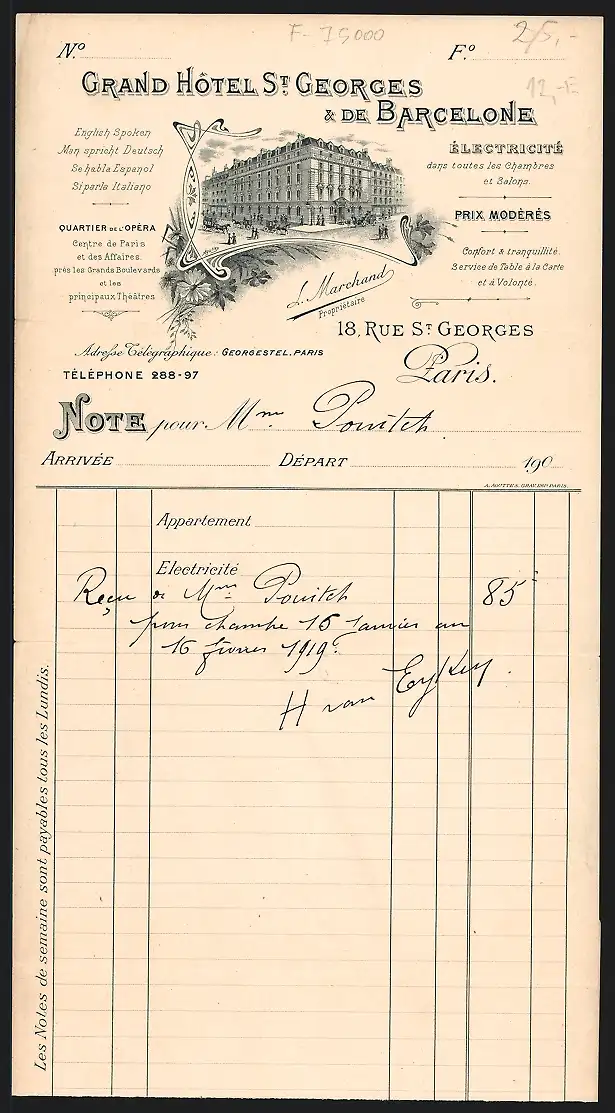 F-75000
2/5,-
12,-E
N.º
F.º
GRAND HÔTEL ST GEORGES
& DE BARCELONE
English Spoken
Man spricht Deutsch
Se habla Espanol
Si parla Italiano
QUARTIER DE L'OPÉRA
Centre de Paris
et des Affaires.
près les Grands Boulevards
et les
principaux Théâtres
ÉLECTRICITÉ
dans toutes les Chambres
et Salons.
PRIX MODÉRÉS
Confort & tranquillité.
Service de Table à la Carte
et à Volonté.
L. Marchand
Propriétaire
18, RUE ST GEORGES
Paris.
Adresse Télégraphique: GEORGESTEL. PARIS
TÉLÉPHONE 288-97
NOTE pour Mme Pouitch
ARRIVÉE DÉPART 190
Appartement
Electricité
Reçu de Mme Pouitch 85
pour chambre 16 janvier au
16 février 1919.
H van Eyken.
Les Notes de semaine sont payables tous les Lundis.